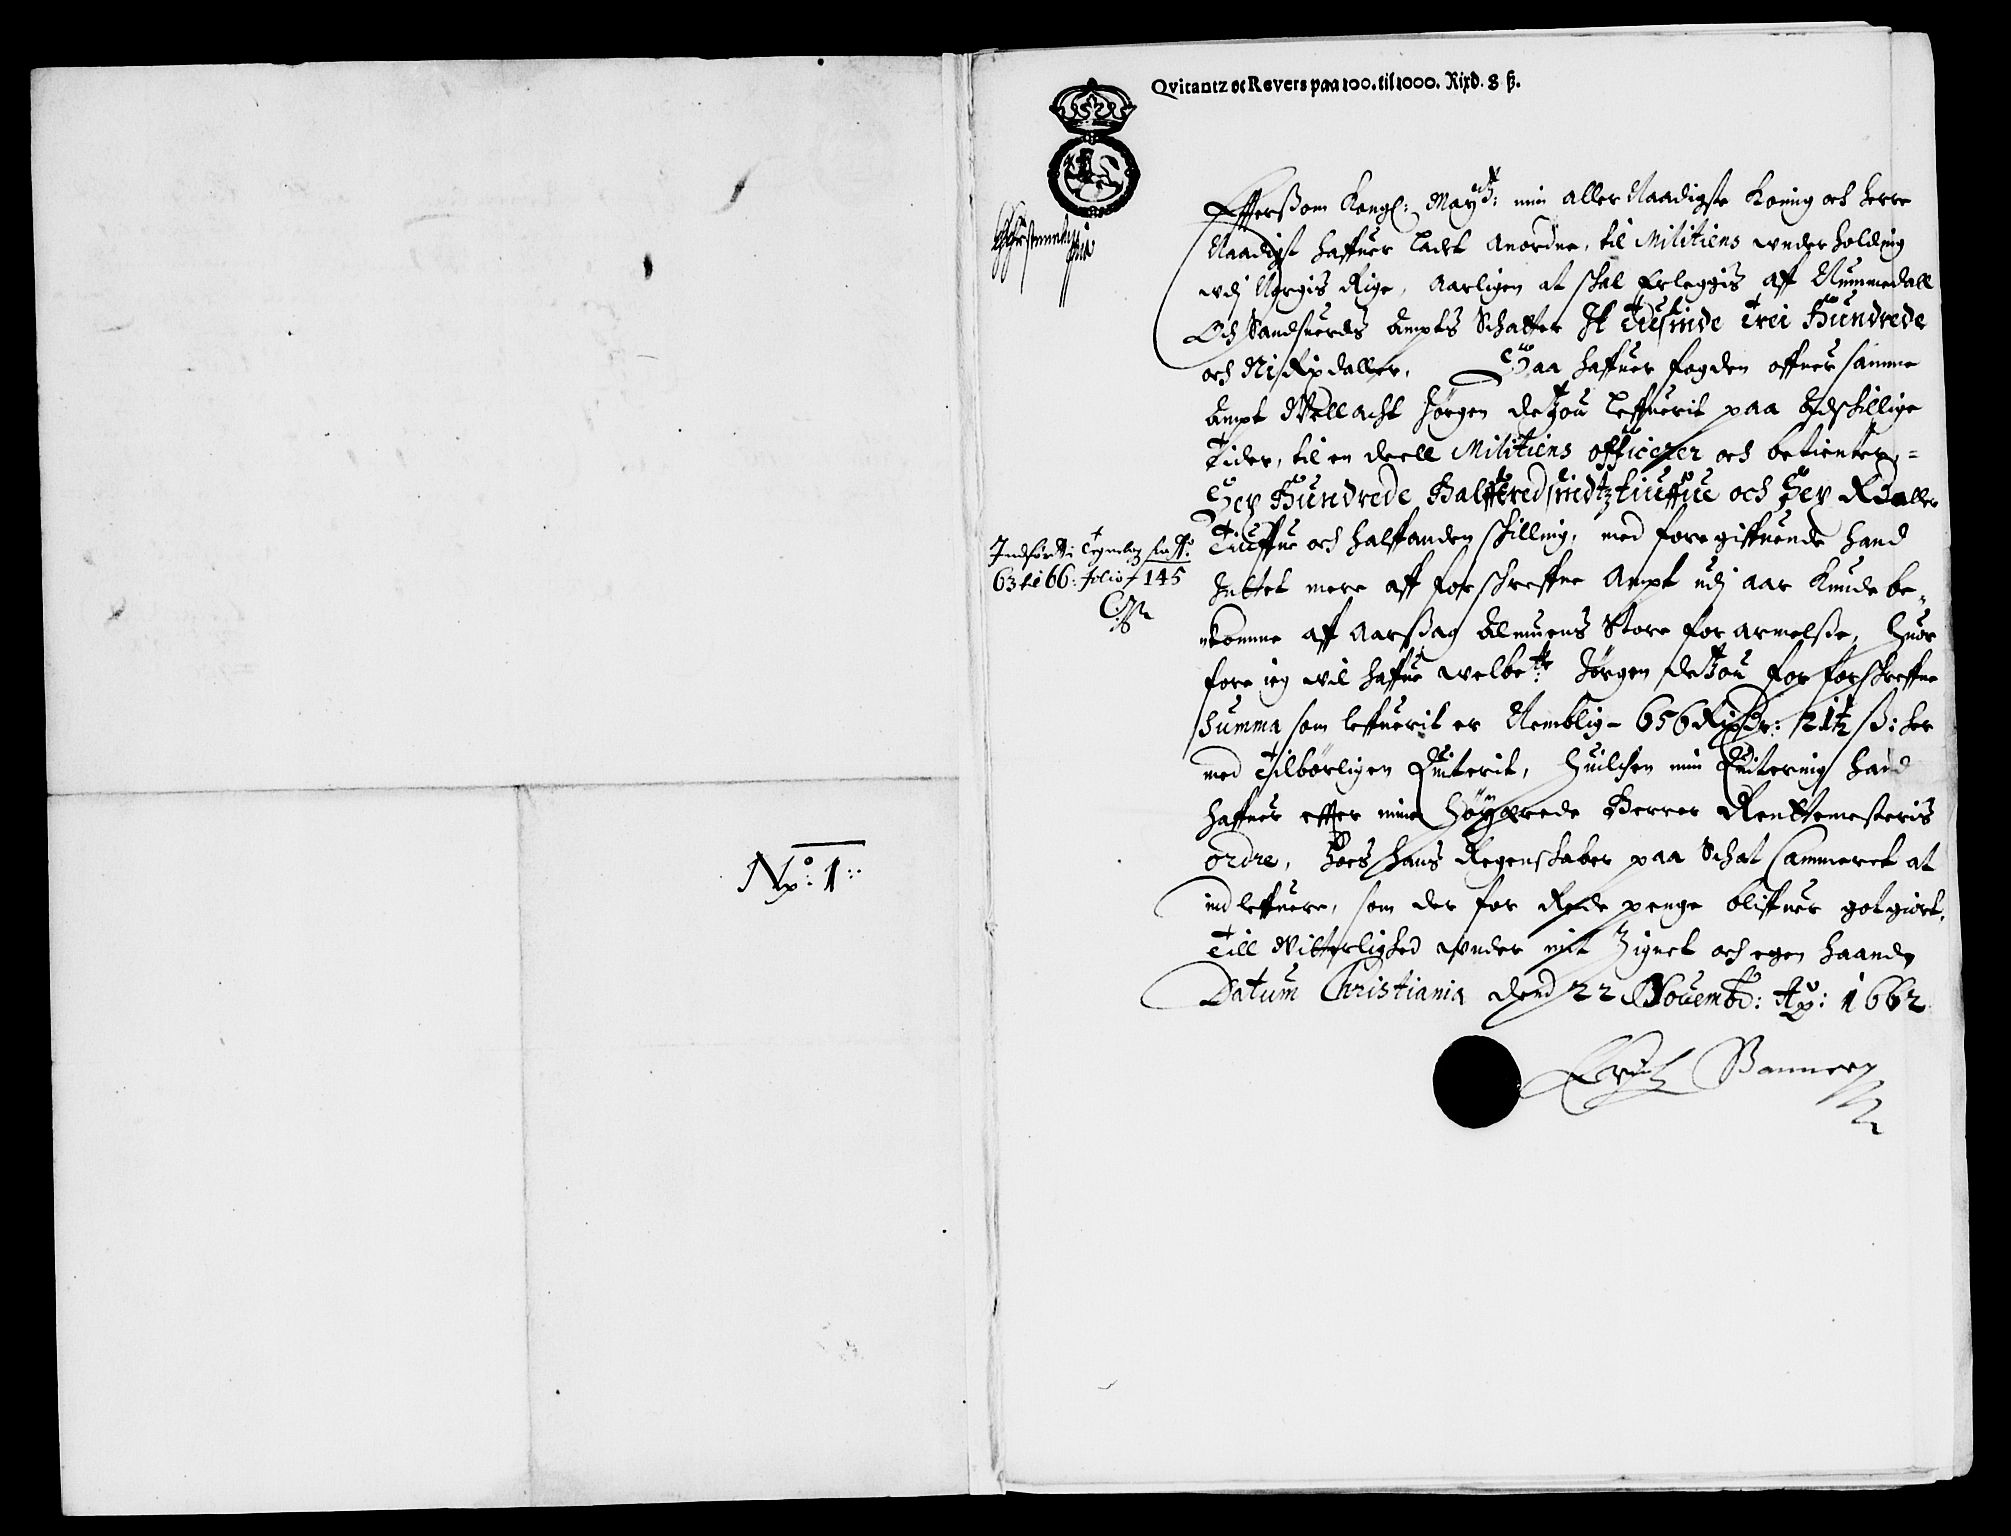 No: 1
Qvitantz oc Revers paa 100. til 1000. Rixd. 8 ß.
Effterßom Kongl: May:tz: min aller Naadigste Koning och herre
Naadigst haffuer ladet anordne, til Militiens underholding
udj Norgis Rige, Aarligen at skal Erleggis aff Nummedall
Och Sandsuerds Ampts Schatter It Tusinde Trei Hundrede
och Ni Rixdaller. Saa haffuer fogden offuer samme
Ampt Wellacht Jørgen deZou leffuerit paa Adskillige
Tider, til en deell Militiens officerer och betienter,
Sex Hundrede Halfftredsindtztiuffue och Sex Rdaller
Tiuffue och halffanden skilling, med foregiffuende hand
Inttet mere aff forschreffne Ampt udj aar kunde be-
komme aff aarßag Almuens Store forarmelße, Huor
fore ieg wil haffue welbete: Jørgen deZou for forskreffne
Summa som leffuerit er Nemblig- 656 Rixdr: 21½ ß: her
med Tilbørligen Quiterit, Huilchen min Quitering hand
haffuer effter mine Høyærede Herrer Renttemesteris
ordre, hoes hans Regenskaber paa Schat Cammeret at
indleffuere, som der for Rede penge bliffuer gotgiort.
Till Witterlighed under mit Zignet och egen haand
Datum Christiania dend 22 Nouembr: Ao: 1662
Indført i Tegnelsz fra Ao:
63 til 66: folio 145
Erich Banner